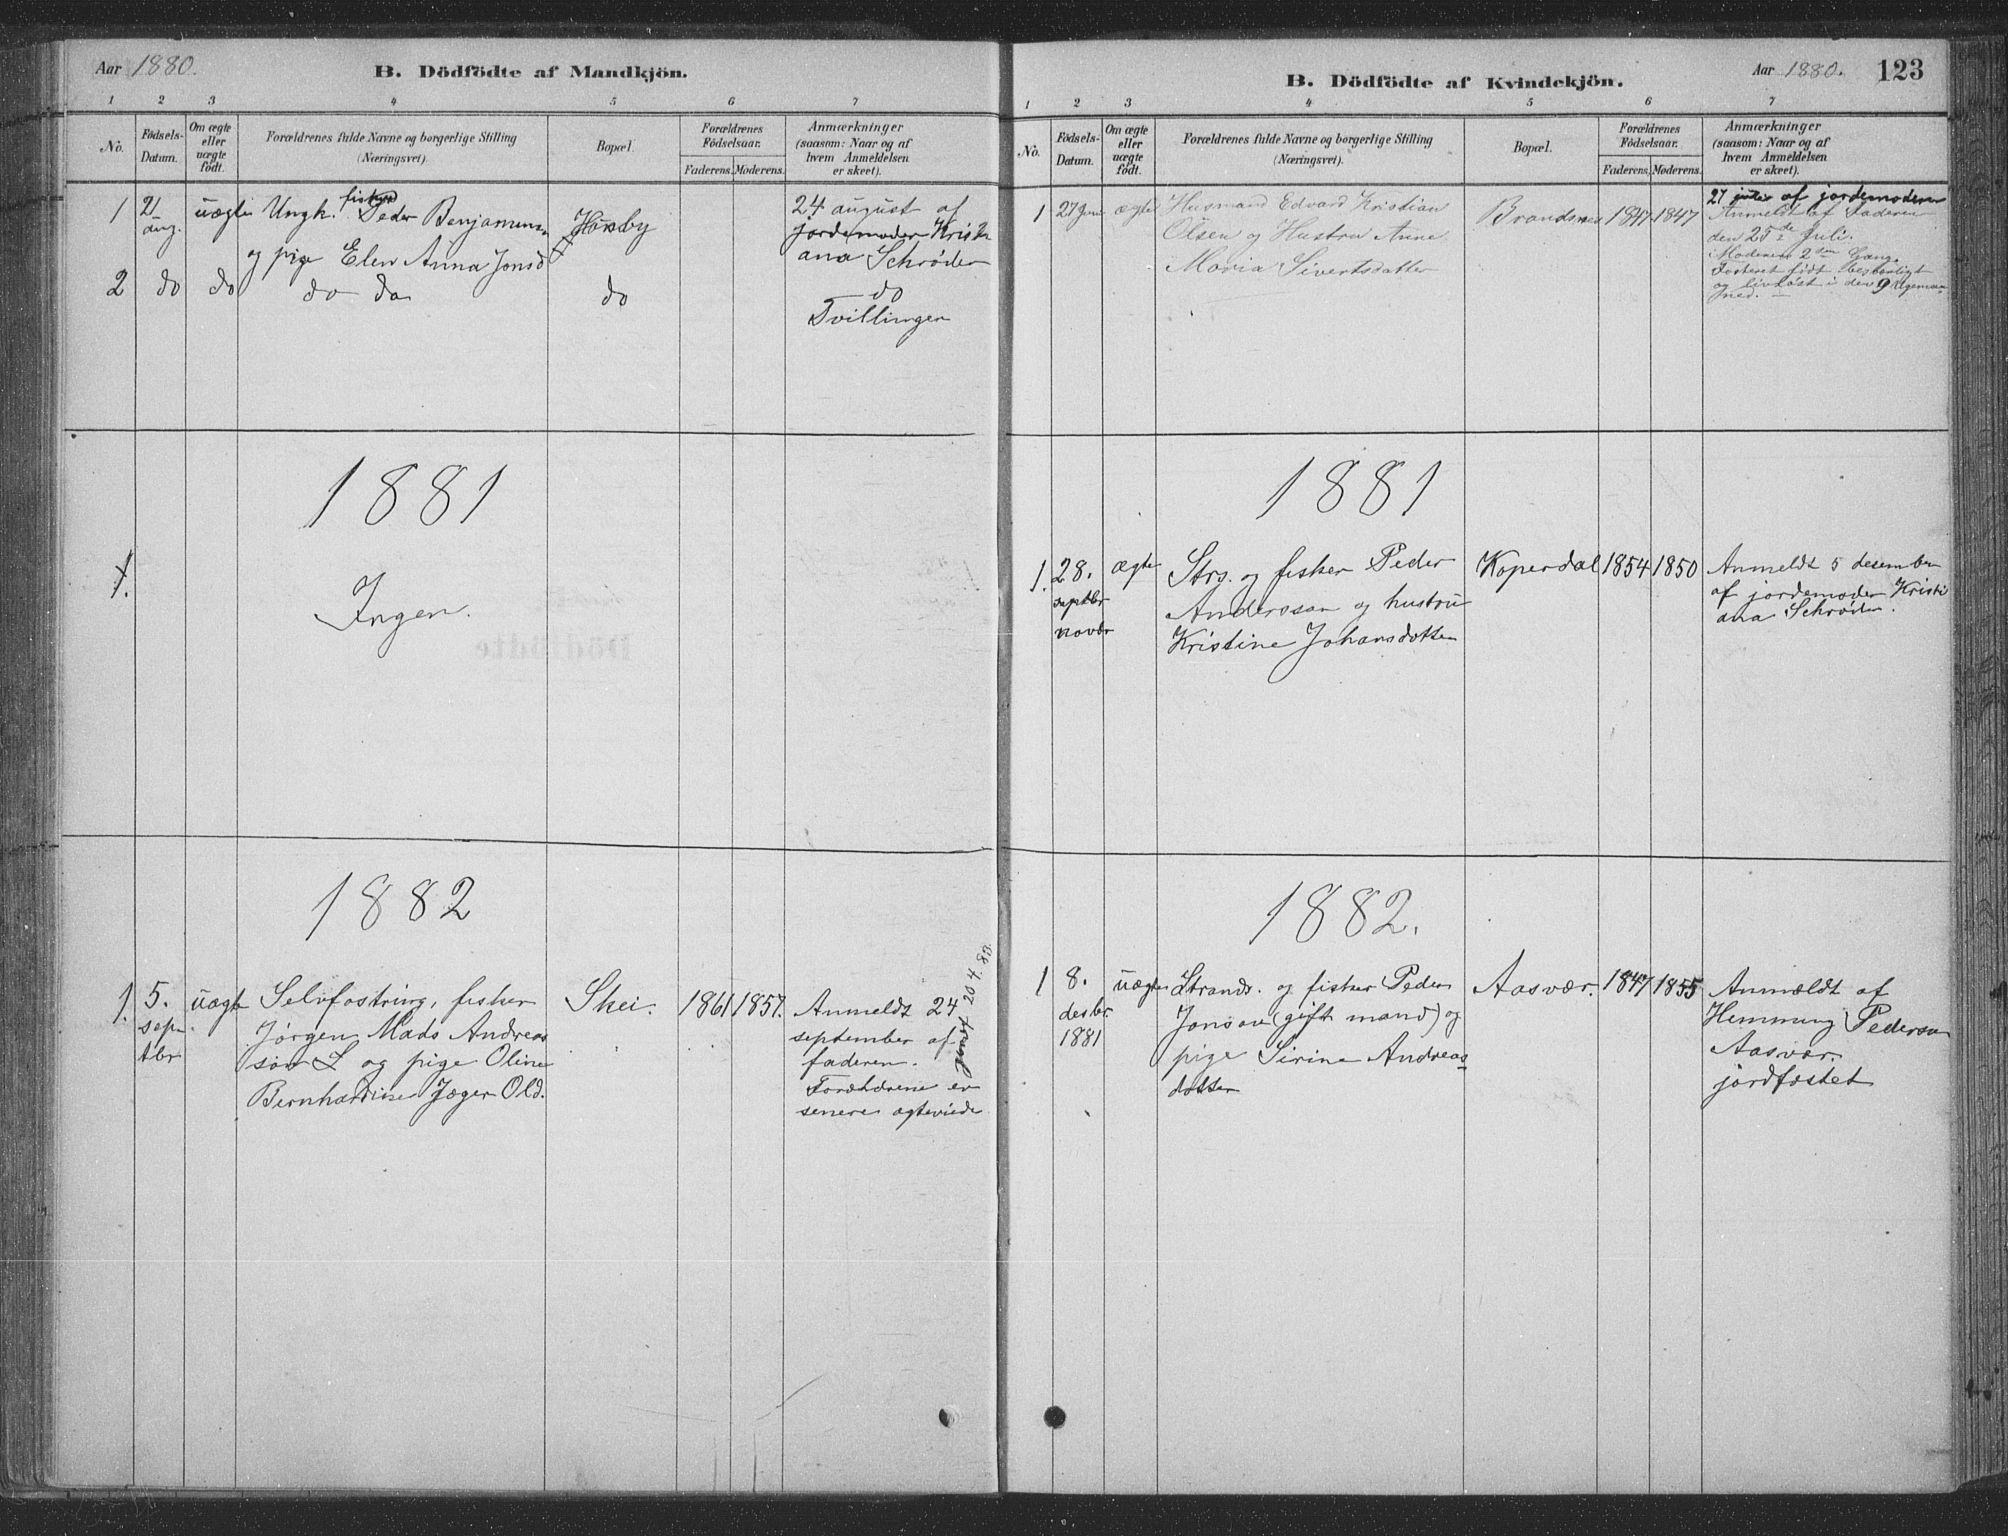 Aar 1880.
B. Dödfödte af Mandkjön.
1 2 3 4 5 6 7
No.
Födsels-
Datum.
Om ægte
eller
uægte
födt.
Forældrenes fulde Navne og borgerlige Stilling
(Næringsvei).
Bopæl.
Forældrenes
Födselsaar.
Faderens. Moderens.
Anmærkninger
(saasom: Naar og af
hvem Anmeldelsen
er skeet).
1 21 uægte Ungk. fisker Peder Benjamins.
aug.
og pige Elen Anna Jonsd
Husby
24 august af
jordemoder Kristi
ana Schrøder
2 do do do do do
do
Tvillinger
1881
1.
Ingen.
1882
1. 5.
sep-
tbr
uægte
Selvfostring, fisker
Jørgen Mads Andreas
søn L og pige Oline
Bernhardine Jæger Old.
Skei.
1861 1857.
Anmeldt 24
september af
faderen.
Forældrene er
senere ægteviede
20 4. 83.
B. Dödfödte af Kvindekjön.
Aar 1880. 123
1 2 3 4 5 6 7
No.
Födsels-
Datum.
Om ægte
eller
uægte
födt.
Forældrenes fulde Navne og borgerlige Stilling
(Næringsvei).
Bopæl.
Forældrenes
Födselsaar.
Faderens. Moderens.
Anmærkninger
(saasom: Naar og af
hvem Anmeldelsen
er skeet).
1 27 Juni ægte
Husmand Edvard Kristian
Olsen og Hustru Anne
Maria Sivertsdatter
Brandsnes 1847 1847
27 af jordemoderen
Anmeldt af Faderen
den 25de Juli.
Moderens 2den Gang.
Fosteret født
og livløst i den 9
ned.
1881
1. 28.
septbr
novbr
ægte
Strs. og fisker Peder
Anderssøn og hustru
Kristine Johansdatter
Koperdal 1854 1850
Anmeldt 5 desember
af jordemoder Kristi
ana Schrøder.
1882.
1 8.
desbr
1881
uægte
Strands. og fisker Peder
Jonsøn (gift mand) og
pige Sirine Andreas
datter
Aasvær. 1847 1855
Anmældt af
Hemming Pederson
Aasvær.
jordfæstet